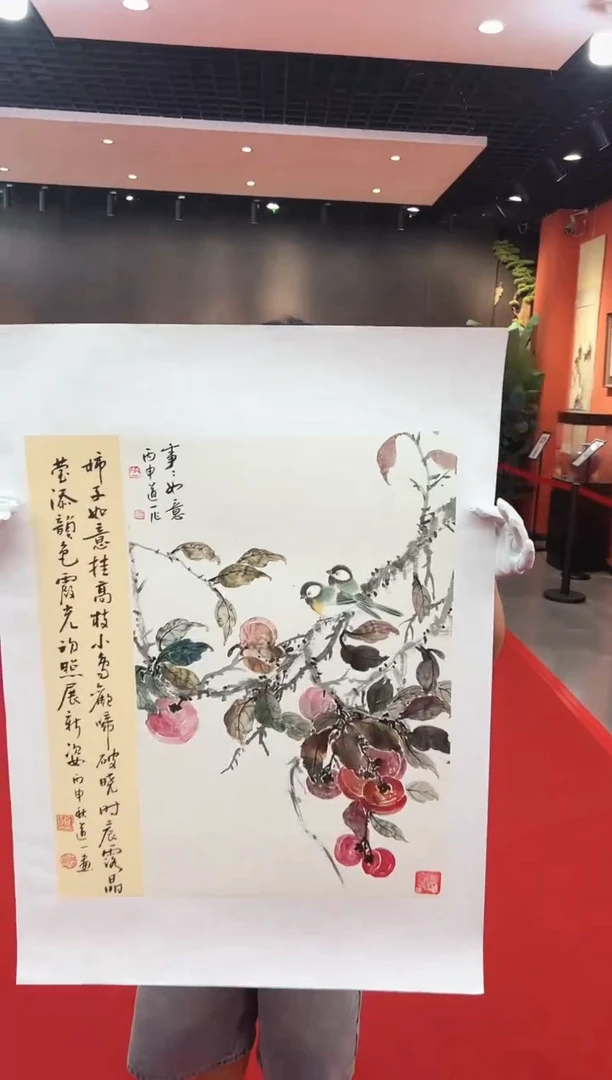 事〻如意
丙申道一作
柿子如意挂高枝小鸟歡啼破晓时晨露晶
莹添顏色霞光初照展新姿 丙申秋道一畫